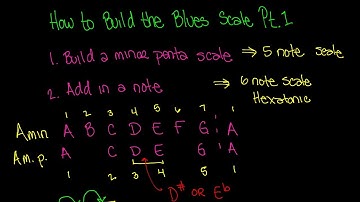 How to Build the Blues Scale Pt.1
1. Build a minor penta scale ⇒ 5 note scale
2. Add in a note ⇒ 6 note scale
Hexatonic
1 2 3 4 5 6 7 1
Amin A B C D E F G A
Am.p. A C D E G A
1 2 3 4 5 1
D# OR Eb